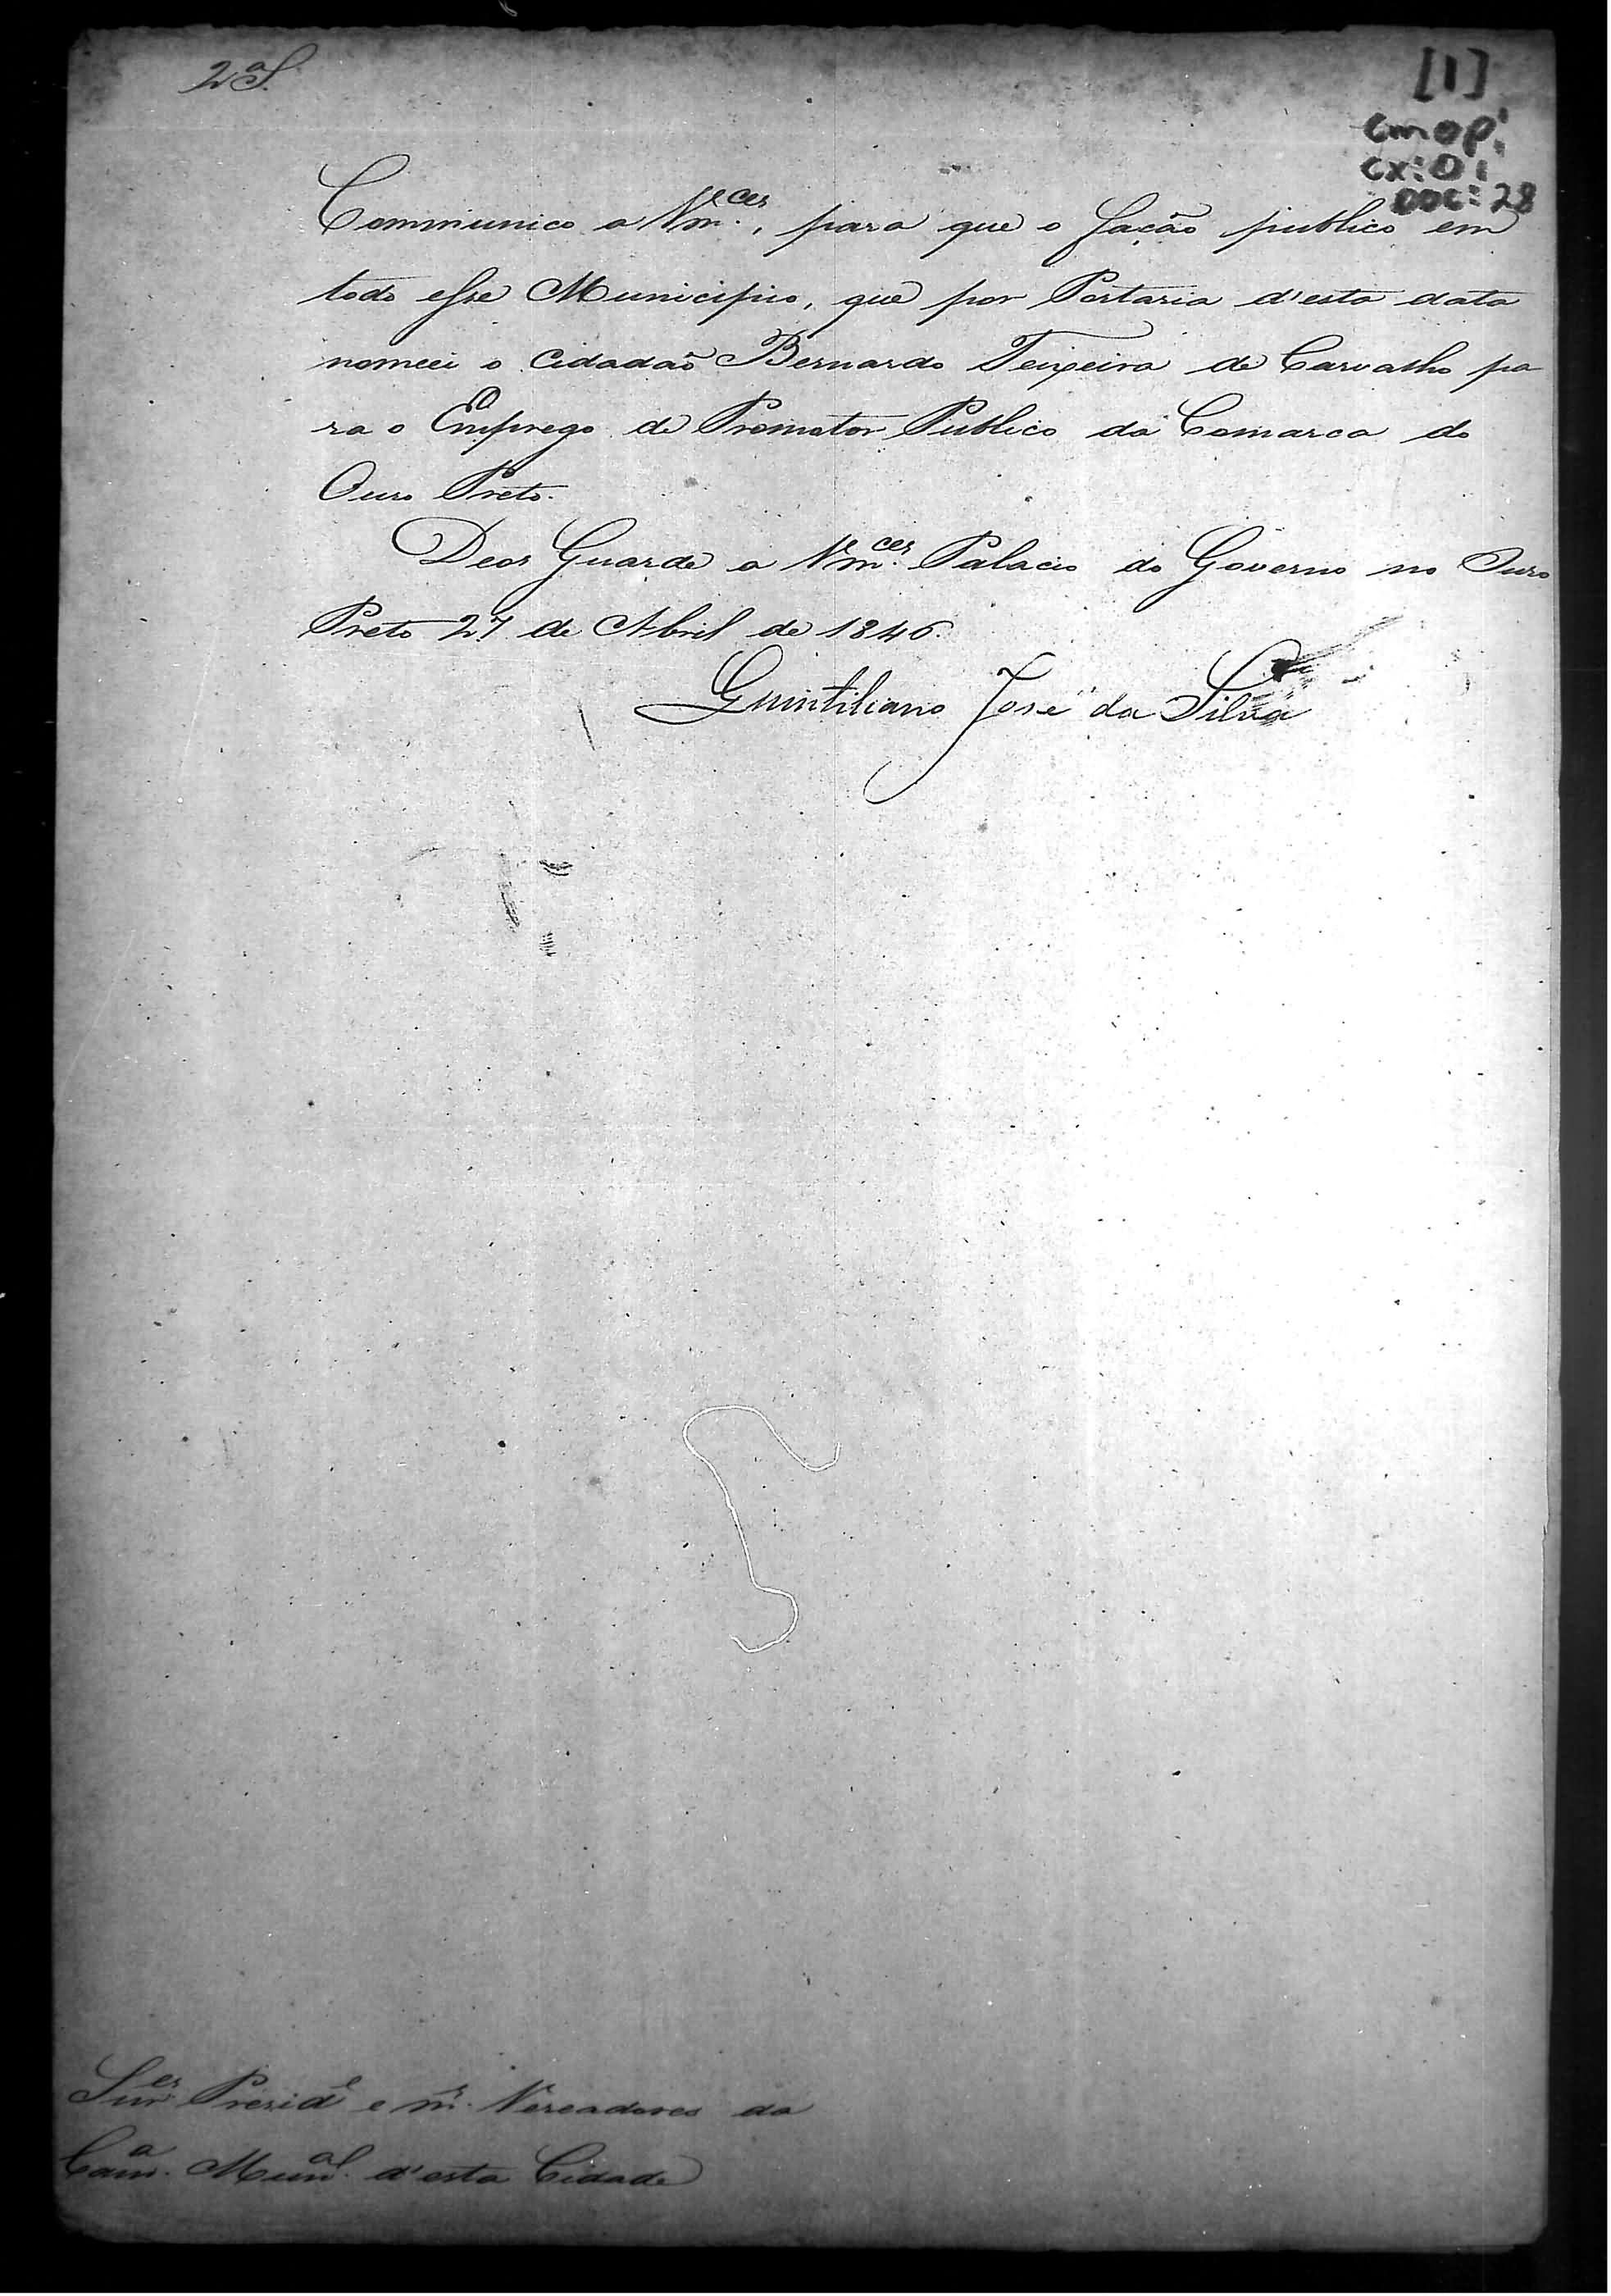 2ª S.
[1]
cmop.
cx: 01
DOC: 28
Communico a Vm.ces, para que o fação publico em
todo esse Municipio, que por Portaria d'esta data
nomeei o Cidadaõ Bernardo Teixeira de Carvalho pa
ra o Emprego de Promotor Publico da Comarca do
Ouro Preto.
Deos Guarde a Vm.ces Palacio do Governo no Ouro
Preto 27 de Abril de 1846.
Quintiliano José da Silva
Snr.es Presid.e e m.s Vereadores da
Cam.a Mun.al d'esta Cidade